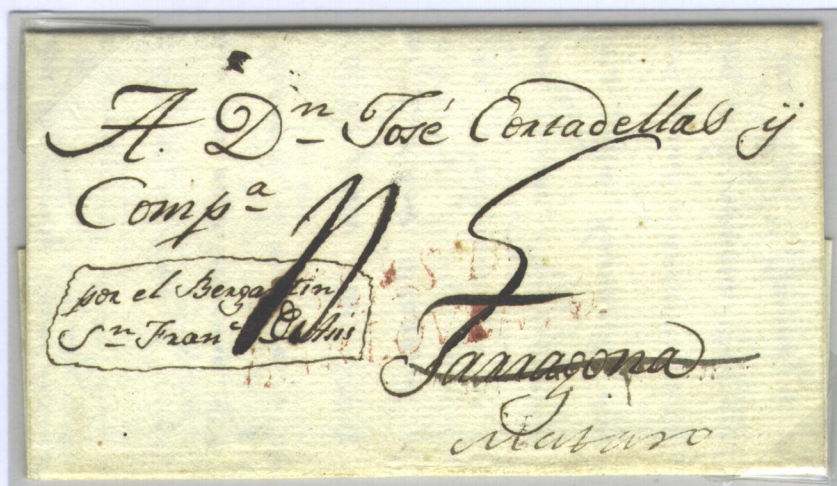 A. Dn José Cortadellas ÿ
Compa
por el Bergantin
Sn Franco De Asis
Tarragona
Mataro